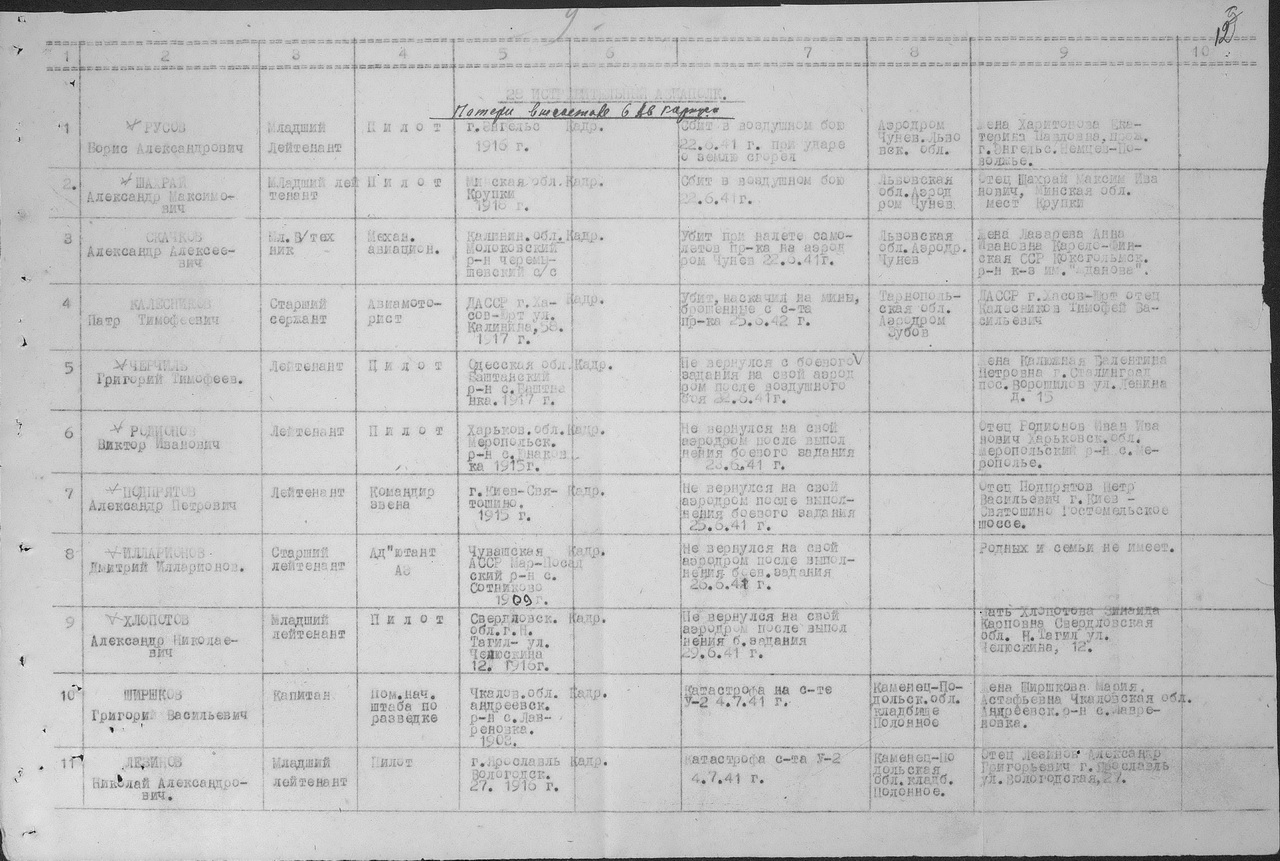 9
12
1 2 3 4 5 6 7 8 9 10
28 ИСТРЕБИТЕЛЬНЫЙ АВИАПОЛК.
Потери в составе 6 АВ корпуса
1
РУСОВ
Борис Александрович
Младший
Лейтенант
Пилот
г. Энгельс
1916 г.
Кадр.
Сбит в воздушном бою
22.6.41 г. при ударе
о землю сгорел
Аэродром
Чунев.Льво
вск. обл.
Жена Харитонова Ека-
терина Павловна, прож.
г.Энгельс.Немцев-По-
волжье.
2.
ШАХРАЙ
Александр Максимо-
вич
Младший лей
тенант
Пилот
Минская обл.
Крупки
1918 г.
Кадр.
Сбит в воздушном бою
22.6.41г.
Львовская
обл.Аэрод
ром Чунев
Отец Шахрай Максим Ива
нович, Минская обл.
мест Крупки
3
СКАЧКОВ
Александр Алексее-
вич
Мл.В/тех
ник
Механ.
авиацион.
Калинин.обл.
Молоковский
р-н черемы-
шевский с/с
Кадр.
Убит при налете само-
летов пр-ка на аэрод
ром Чунев 22.6.41г.
Львовская
обл.Аэродр.
Чунев
Жена Лазарева Анна
Ивановна Карело-Фин-
ская ССР Коксгольмск.
р-н к-з им."Жданова".
4
КАЛЕСНИКОВ
Патр Тимофеевич
Старший
сержант
Авиамото-
рист
ДАССР г.Ха-
сов-Юрт ул.
Калинина,58.
1917 г.
Кадр.
Убит, наскачил на мины,
брошенные с с-та
пр-ка 25.6.42 г.
Тарнополь-
ская обл.
Аэродром
Зубов
ДАССР г.Хасов-Юрт отец
Калесников Тимофей Ва-
сильевич
5
ЧЕРЧИЛЬ
Григорий Тимофеев.
Лейтенант
Пилот
Одесская обл.
Баштанский
р-н с.Башта
нка.1917 г.
Кадр.
Не вернулся с боевого
задания на свой аэрод
ром после воздушного
боя 22.6.41г.
Жена Калюжная Валентина
Петровна г.Сталинград
пос.Ворошилов ул.Ленина
д. 15
6
РОДИОНОВ
Виктор Иванович
Лейтенант
Пилот
Харьков.обл.
Меропольск.
р-н с.Юнаков
ка 1915г.
Кадр.
Не вернулся на свой
аэродром после выпол
нения боевого задания
23.6.41 г.
Отец Родионов Иван Ива
нович Харьковск.обл.
Меропольский р-н с.Ме-
рополье.
7
ПОДПРЯТОВ
Александр Петрович
Лейтенант
Командир
звена
г.Киев-Свя-
тошино.
1915 г.
Кадр.
Не вернулся на свой
аэродром после выпол-
нения боевого задания
25.6.41 г.
Отец Подпрятов Петр
Васильевич г.Киев -
Святошино Гостомельское
шоссе.
8
ИЛЛАРИОНОВ
Дмитрий Илларионов.
Старший
лейтенант
Ад"ютант
Аэ
Чувашская
АССР Мар-Посад
ский р-н с.
Сотниково
1909г.
Кадр.
Не вернулся на свой
аэродром после выпол-
нения боев.задания
26.6.41 г.
Родных и семьи не имеет.
9
ХЛОПОТОВ
Александр Николае-
вич
Младший
лейтенант
Пилот
Свердловск.
обл.г.Н.
Тагил- ул.
Челюскина
12. 1916г.
Кадр.
Не вернулся на свой
аэродром после выпол
нения б.задания
29.6.41 г.
Мать Хлопотова Зинаида
Касповна Свердловская
обл. Н.Тагил ул.
Челюскина, 12.
10
ШИРШКОВ
Григорий Васильевич
Капитан
Пом.нач.
штаба по
разведке
Чкалов.обл.
андреевск.
р-н с.Лав-
реновка.
1908.
Кадр.
Катастрофа на с-те
У-2 4.7.41 г.
Каменец-По-
дольск.обл.
кладбище
Полонное
Жена Ширшкова Мария.
Астафьевна Чкаловская обл.
Андреевск.р-н с.Лавре-
новка.
11
ЛЕВИНОВ
Николай Александро-
вич.
Младший
лейтенант
Пилот
г.Ярославль
Вологодск.
27. 1916 г
Кадр.
Катастрофа с-та У-2
4.7.41 г.
Каменец-По
дольская
обл.кладб.
Полонное.
Отец Левинов Александр
Григорьевич г.Ярославль
ул.Вологодская,27.